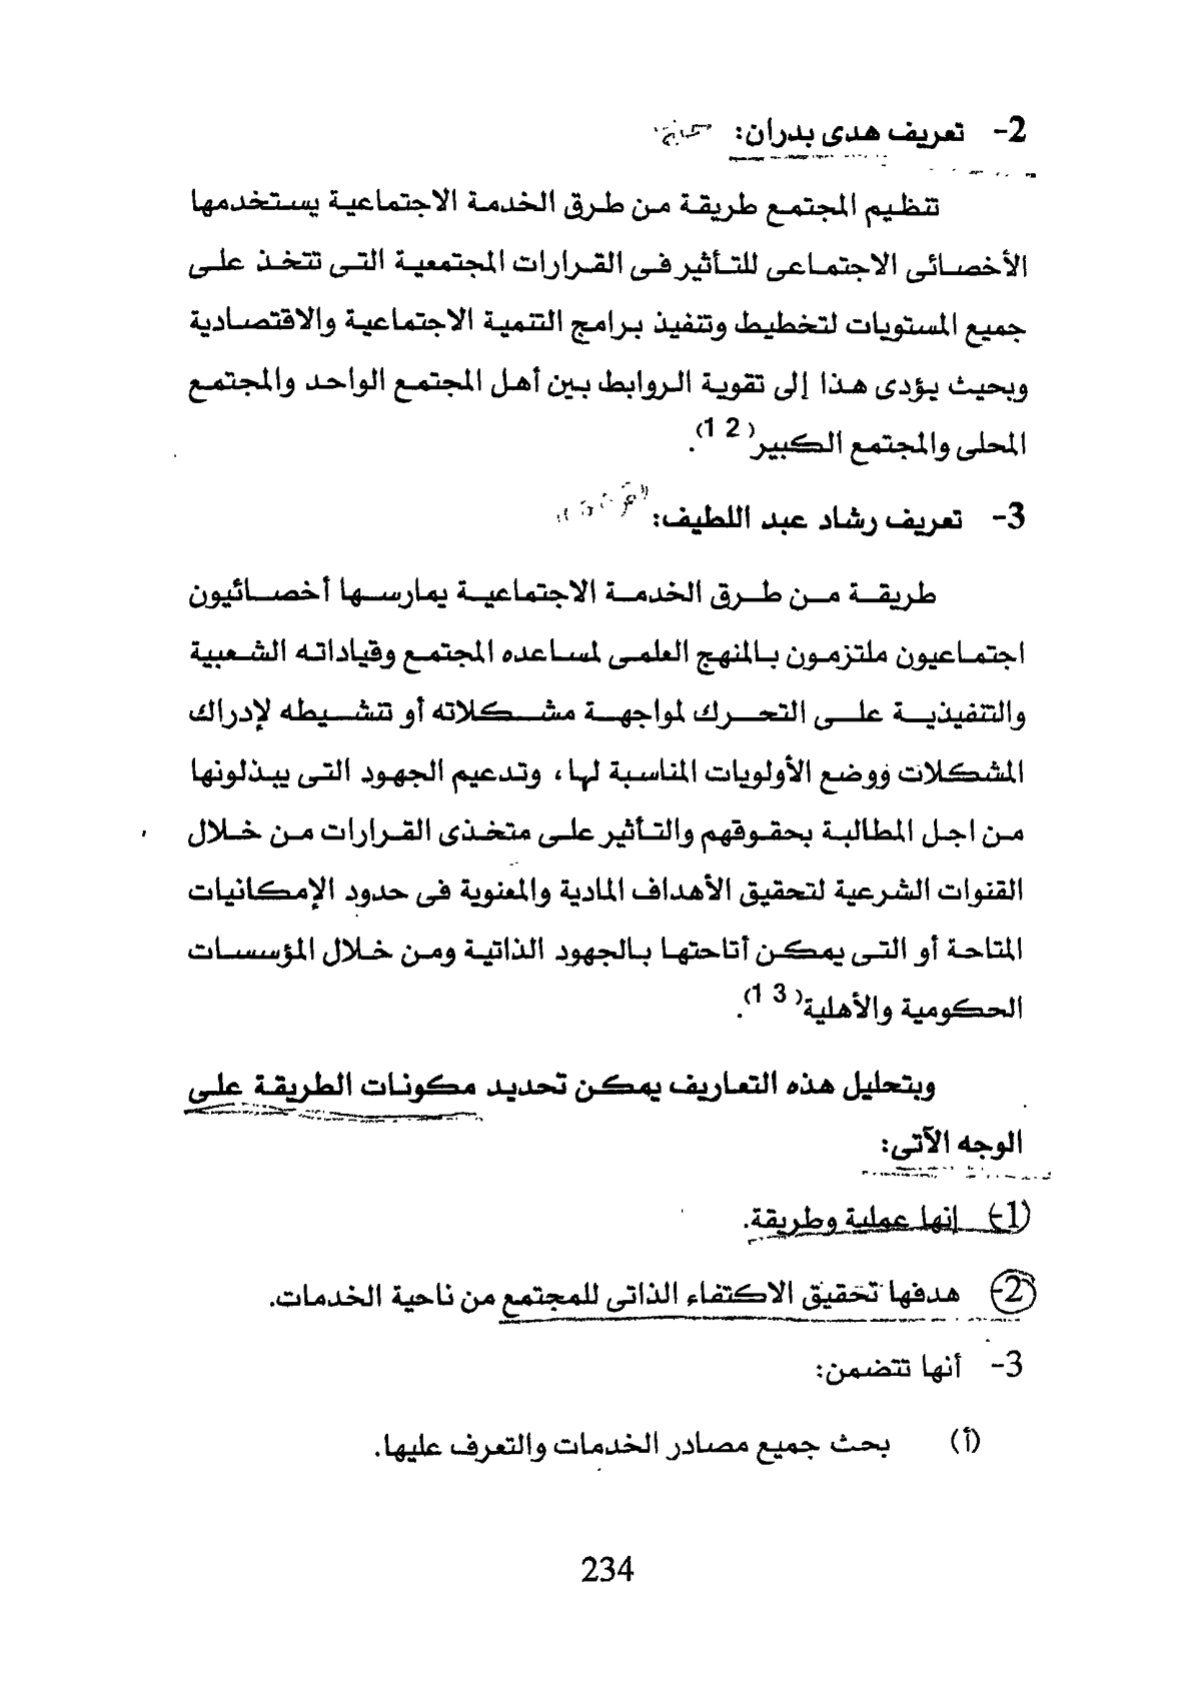 2- تعريف هدى بدران:
تنظيم المجتمع طريقة من طرق الخدمة الاجتماعية يستخدمها
الأخصائى الاجتماعى للتأثير فى القرارات المجتمعية التى تتخذ على
جميع المستويات لتخطيط وتنفيذ برامج التنمية الاجتماعية والاقتصادية
وبحيث يؤدى هذا إلى تقوية الروابط بين أهل المجتمع الواحد والمجتمع
المحلى والمجتمع الكبير(12).
3- تعريف رشاد عبد اللطيف:
طريقة من طرق الخدمة الاجتماعية يمارسها أخصائيون
اجتماعيون ملتزمون بالمنهج العلمى لمساعده المجتمع وقياداته الشعبية
والتنفيذية على التحرك لمواجهة مشكلاته أو تنشيطه لإدراك
المشكلات ووضع الأولويات المناسبة لها، وتدعيم الجهود التى يبذلونها
من اجل المطالبة بحقوقهم والتأثير على متخذى القرارات من خلال
القنوات الشرعية لتحقيق الأهداف المادية والمعنوية فى حدود الإمكانيات
المتاحة أو التى يمكن أتاحتها بالجهود الذاتية ومن خلال المؤسسات
الحكومية والأهلية(13).
وبتحليل هذه التعاريف يمكن تحديد مكونات الطريقة على
الوجه الآتى:
1- إنها عملية وطريقة.
2- هدفها تحقيق الاكتفاء الذاتى للمجتمع من ناحية الخدمات.
3- أنها تتضمن:
(أ) بحث جميع مصادر الخدمات والتعرف عليها.
234